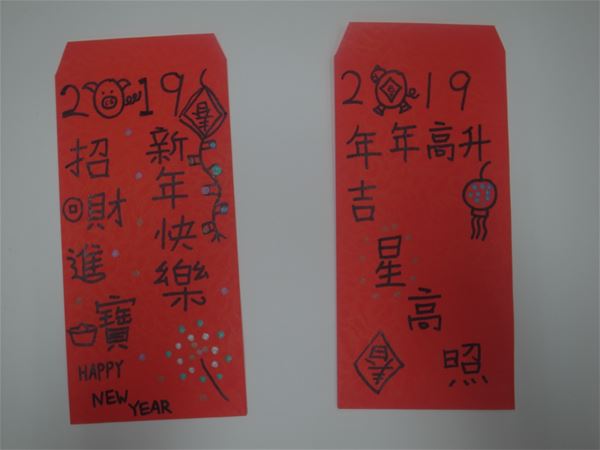 2019
春
新年快樂
招財進寶
HAPPY
NEW
YEAR
2019
年年高升
吉星高照
春